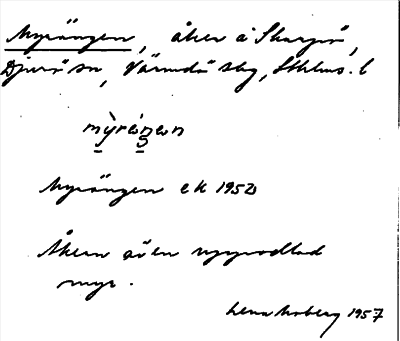 Myrängen, åker å Skarpö,
Djurö sn, Värmdö skg, Sthlms. l
mỳrèŋen
Myrängen ek 1950
Åkern är en uppodlad
myr.
Lena Moberg 1957